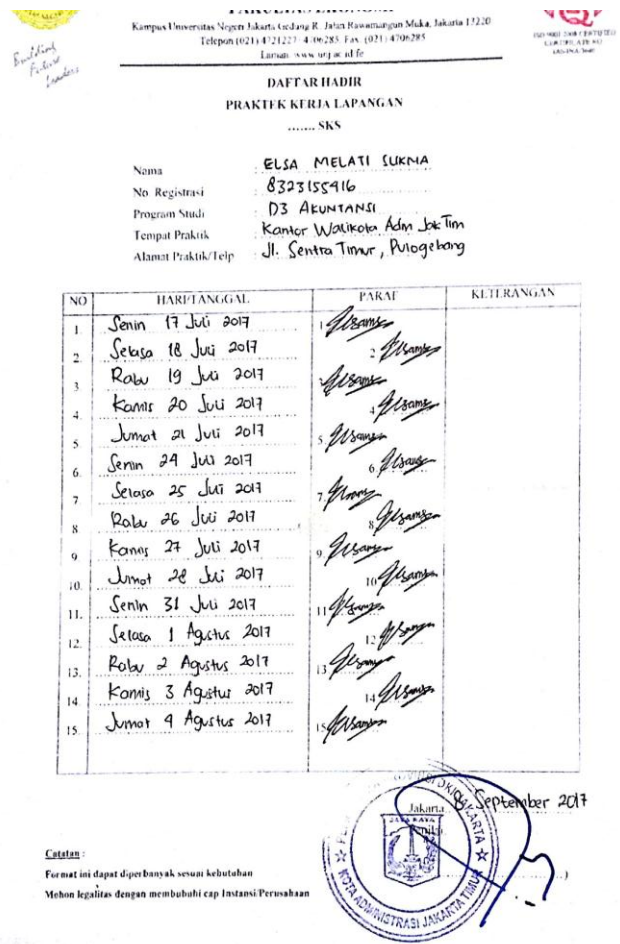 FAKULTAS EKONOMI
Kampus Universitas Negeri Jakarta Gedung R, Jalan Rawamangun Muka, Jakarta 13220
Telepon (021) 4721227 / 4706285, Fax. (021) 4706285
Laman: www.unj.ac.id/fe
Building
Future
Leaders
DAFTAR HADIR
PRAKTEK KERJA LAPANGAN
....... SKS
Nama : ELSA MELATI SUKMA
No. Registrasi : 8323155416
Program Studi : D3 AKUNTANSI
Tempat Praktik : Kantor Walikota Adm Jak Tim
Alamat Praktik/Telp : Jl. Sentra Timur, Pulogebang
NO HARI/TANGGAL PARAF KETERANGAN
1. Senin 17 Juli 2017 1
2. Selasa 18 Juli 2017 2
3. Rabu 19 Juli 2017
4. Kamis 20 Juli 2017 4
5. Jumat 21 Juli 2017 5.
6. Senin 24 Juli 2017 6.
7. Selasa 25 Juli 2017 7.
8. Rabu 26 Juli 2017 8
9. Kamis 27 Juli 2017 9.
10. Jumat 28 Juli 2017 10
11. Senin 31 Juli 2017 11
12. Selasa 1 Agustus 2017 12
13. Rabu 2 Agustus 2017 13
14. Kamis 3 Agustus 2017 14
15. Jumat 4 Agustus 2017 15
Jakarta, 8 September 2017
JAYA RAYA
KOTA ADMINISTRASI JAKARTA TIMUR
Catatan :
Format ini dapat diperbanyak sesuai kebutuhan
Mohon legalitas dengan membubuhi cap Instansi/Perusahaan